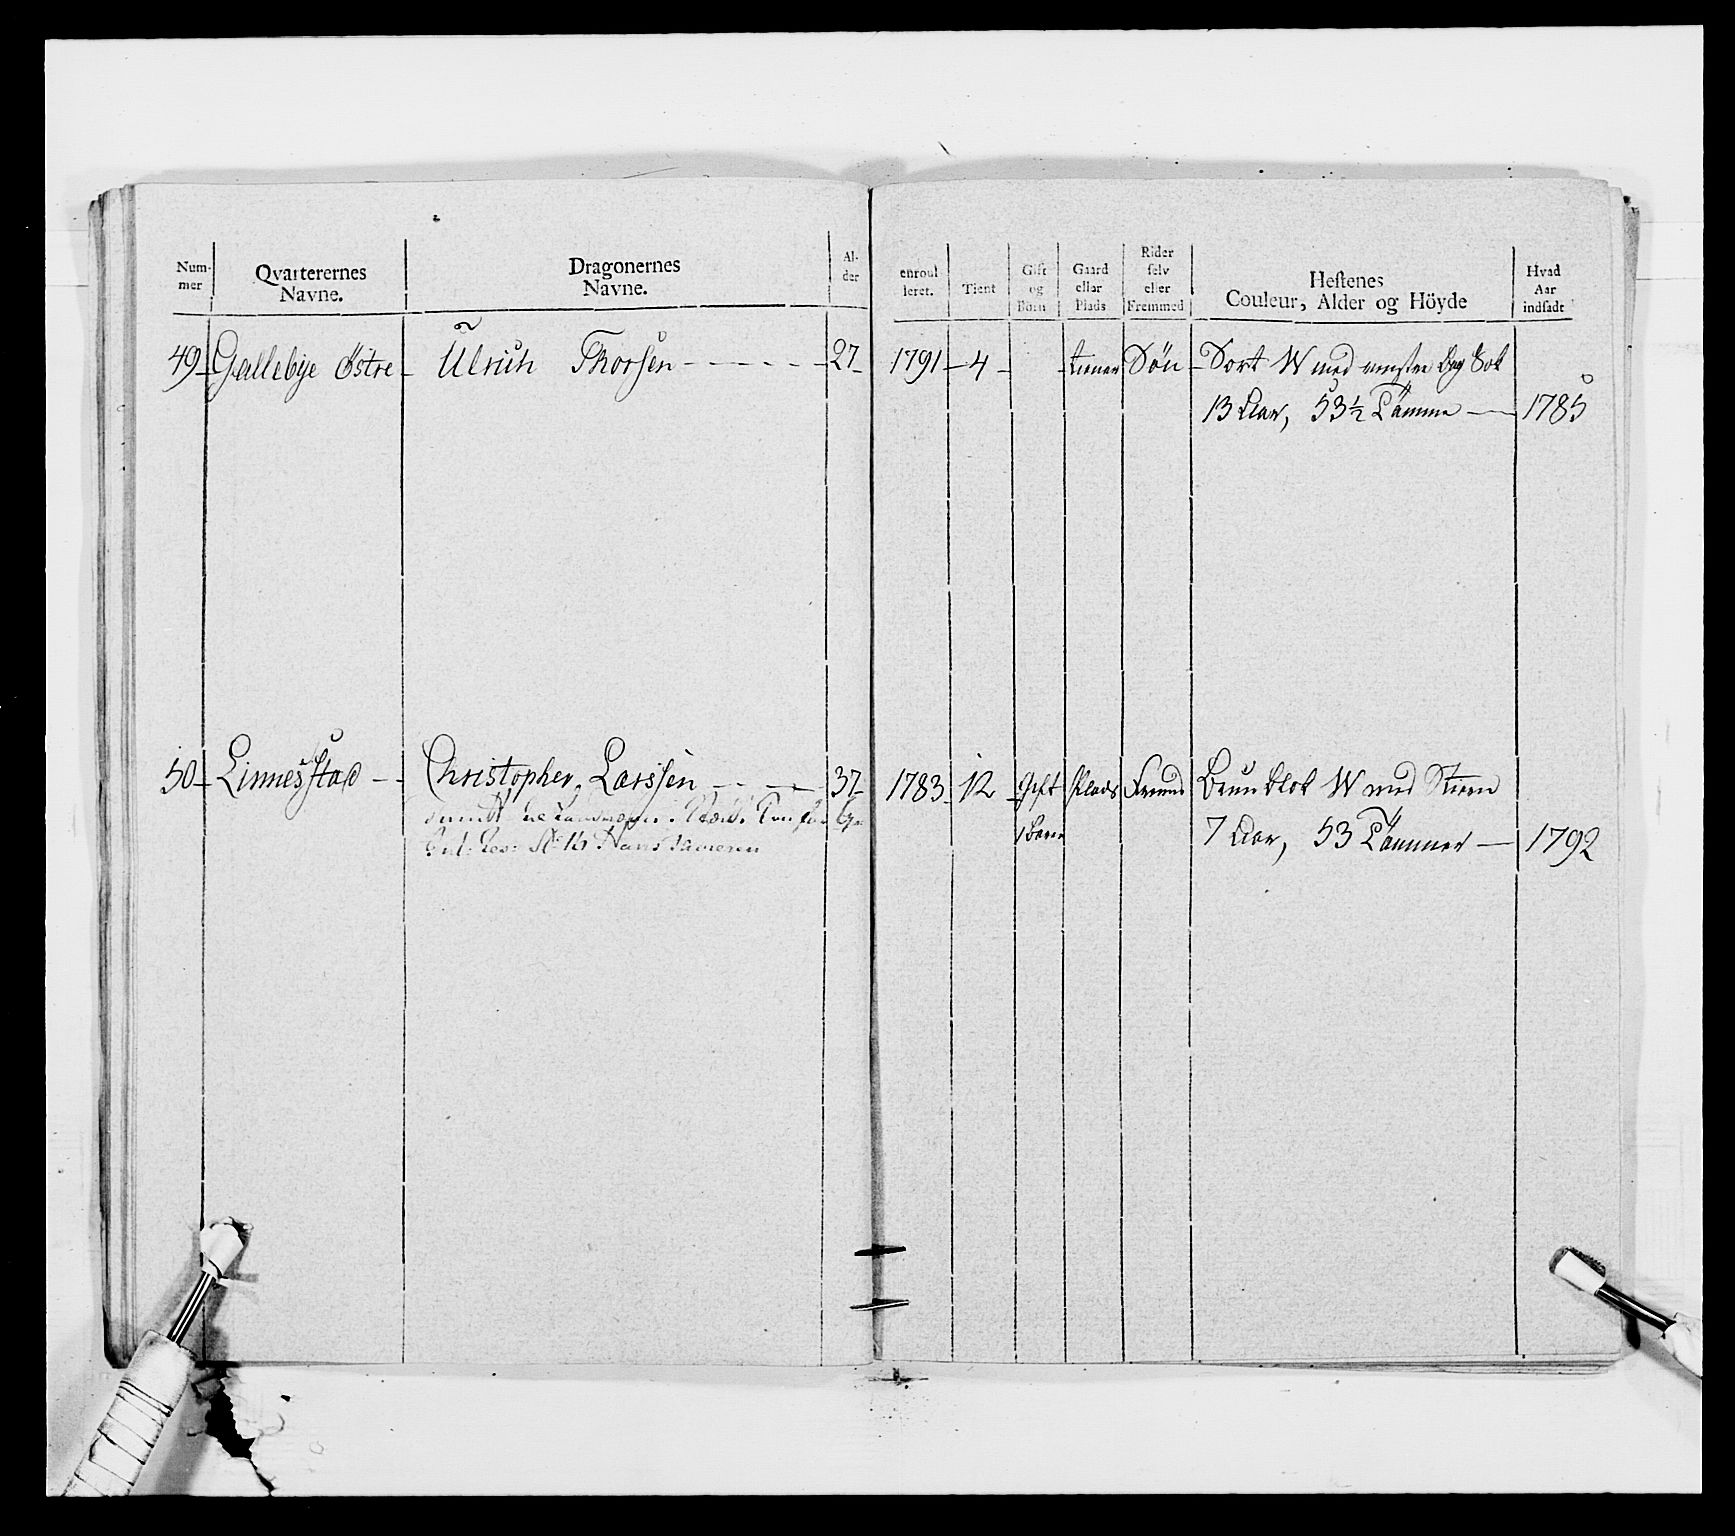 Num-
mer
Qvarterernes
Navne.
Dragonernes
Navne.
Al-
der
enroul
leret.
Tient
Gift
og
Börn
Gaard
eller
Plads
Rider
selv
eller
Fremmed
Hestenes
Couleur, Alder og Höyde
Hvad
Aar
indsadt
49 Gallebye Östre Ulrich Thorsen 27 1791 4 tiener Sön Sort W med
13 Aar, 53½ Tömme 1785
50 Linnesstad Christopher Larssen 37 1783 12 Gift Plads Fremed Bruun blok W med Stiern
1 Barn 7 Aar, 53 Tömmer 1792
No 16 Hans